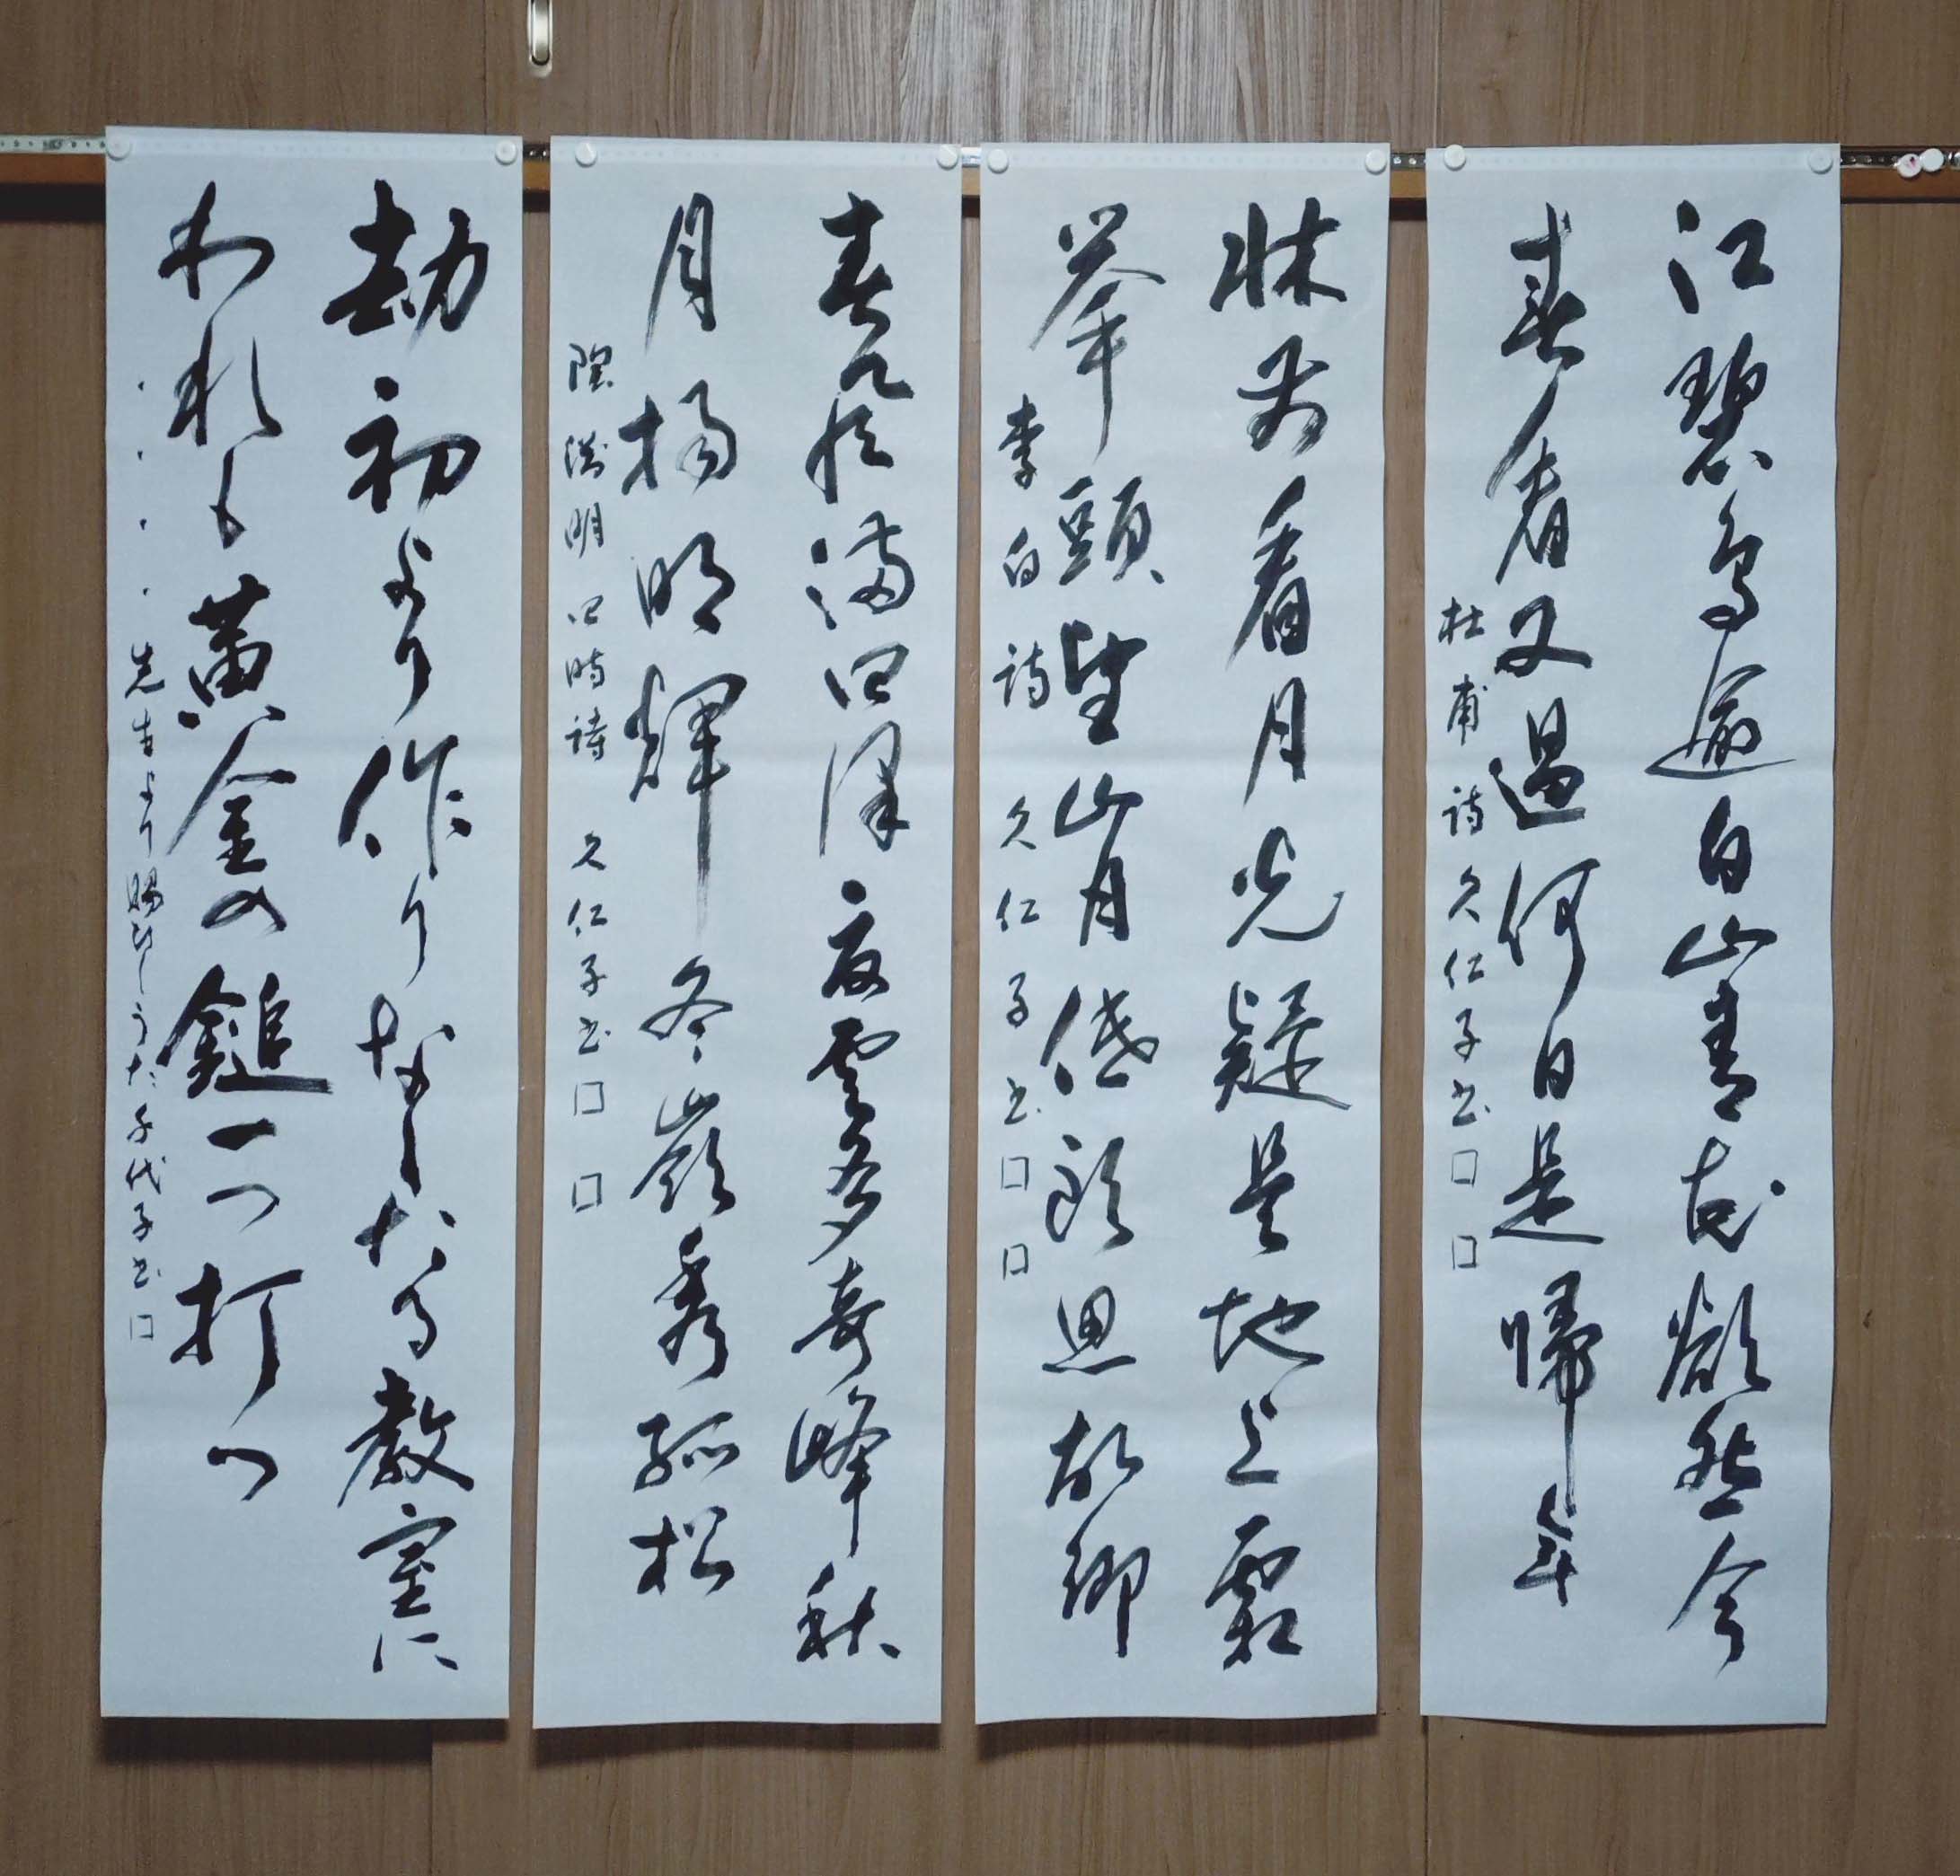 江碧鳥逾白山青花欲然今
春看又過何日是帰年
杜甫詩久仁子書
牀前看月光疑是地上霜
挙頭望山月低頭思故郷
李白詩 久仁子書
春水満四沢夏雲多奇峰秋
月揚明輝冬嶺秀孤松
陶淵明四時詩 久仁子書
劫初より作りなしたる教室に
われも黄金の鎚一つ打つ
・・・・先生より賜りしうた 千代子書